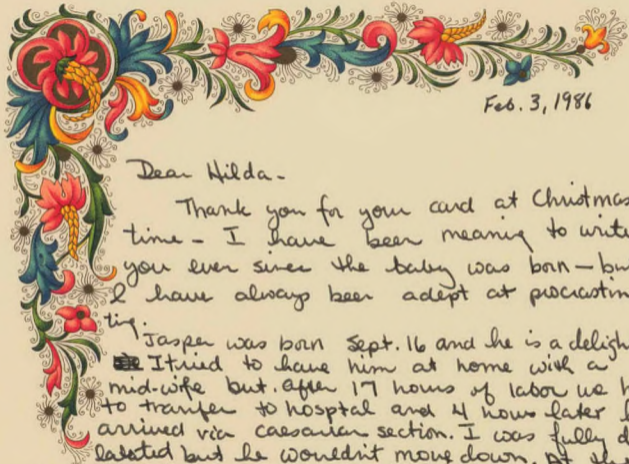 Feb. 3, 1986
Dear Hilda-
Thank you for your card at Christmas
time - I have been meaning to write
you ever since the baby was born - bu
I have always been adept at procrastin
ting.
Jasper was born Sept. 16 and he is a deligh
I tried to have him at home with a
mid-wife but. after 17 hours of labor we h
to tranfer to hosptal and 4 hours later h
arrived via caesarian section. I was fully d
lalated but he wouldn't move down. At the